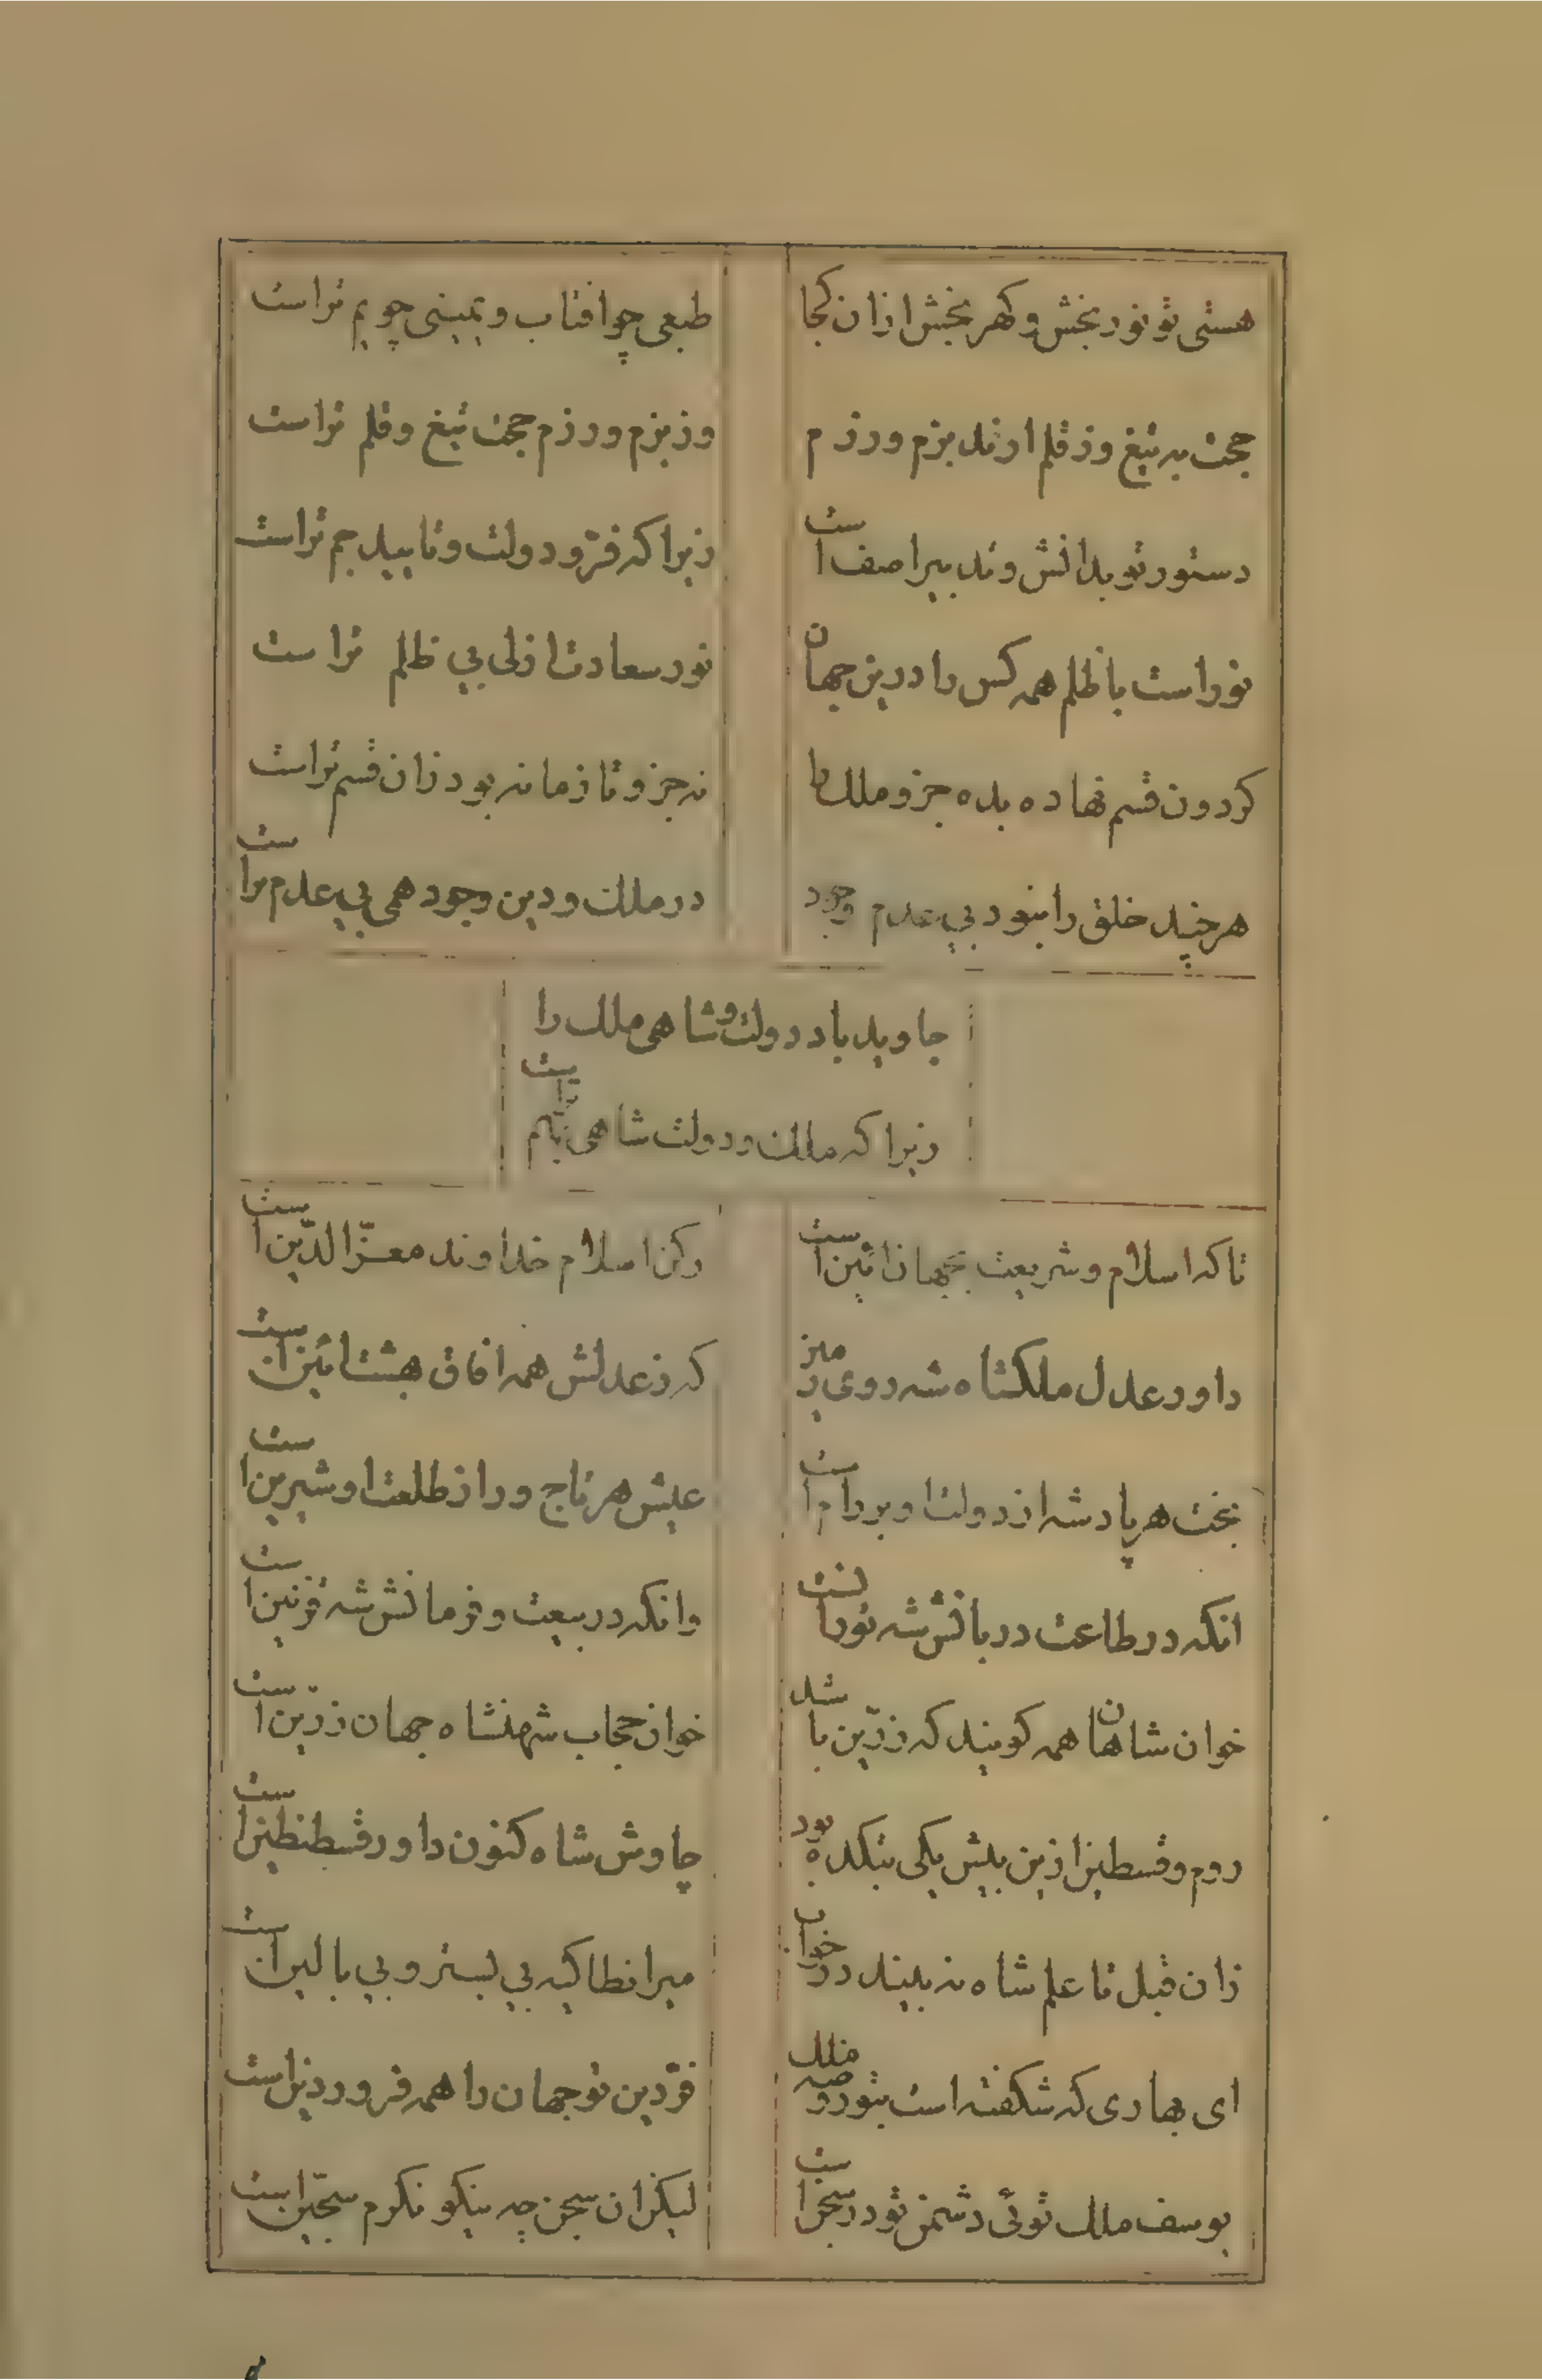 هستی تو نور بخش و کهر بخش از ان کجا
طبعی چو افتاب و یمینی چو یم تراست
جحت به تیغ وز قلم ارند بزم و رزم
وز بزم و رزم جحت تیغ و قلم تراست
دستور تو بدانش و تدبیر اصف است
زیرا که فرّ و دولت و تایید جم تراست
نور است با ظلم همه کس را درین جهان
نور سعادت ازلی بی ظلم تراست
کردون قسم نهاده بده جزو ملک را
نه جزو تا زمانه بود زان قسم تراست
هر چند خلق را نبود بی عدم وجود
در ملک و دین وجود همی بی عدم تراست
جاوید باد دولت و شاهی ملک را
زیرا که ملک و دولت شاهی بهم تراست
تا که اسلام و شریعت بجهان ائین است
رکن اسلام خداوند معزّ الدّین است
داور عدل ملکشاه شه روی زمین
که ز عدلش همه افاق بهشت ائین است
بخت هر پادشه از دولت او بر دام است
عیش هر تاجور از طلعت او شیرین است
انکه در طاعت دربانش شه تورانست
وانکه در بیعت و فرمانش شه قزنین است
خوان شاهان همه کویند که زرّین باشد
خوان حجاب شهنشاه جهان زرّین است
روم و قسطین ازین پیش یکی بتکده بود
چاوش شاه کنون داور قسطنطین است
زان قبل تا علم شاه نه بیند در خواب
میر انطاکیه بی بستر و بی بالین است
ای بهاری که شکفته است بتو روضه ملک
فرّ دین تو جهان را همه فروردین است
یوسف ملک توئی دشمن تو در سجن است
لیکن ان سجن چه نیکو نکرم سجّین است